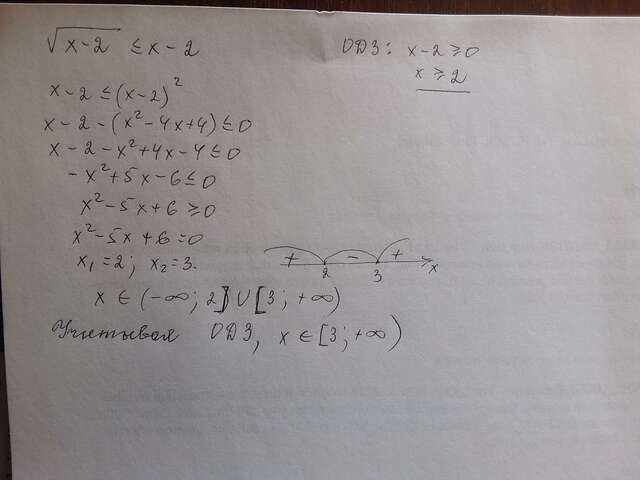 √x-2 ≤ x-2
ОДЗ: x-2 ≥ 0
x ≥ 2
x-2 ≤ (x-2)²
x-2-(x²-4x+4) ≤ 0
x-2-x²+4x-4 ≤ 0
-x²+5x-6 ≤ 0
x²-5x+6 ≥ 0
x²-5x+6=0
x₁=2; x₂=3.
+ - +
2 3 x
x ∈ (-∞; 2] ∪ [3; +∞)
Учитывая ОДЗ, x ∈ [3; +∞)